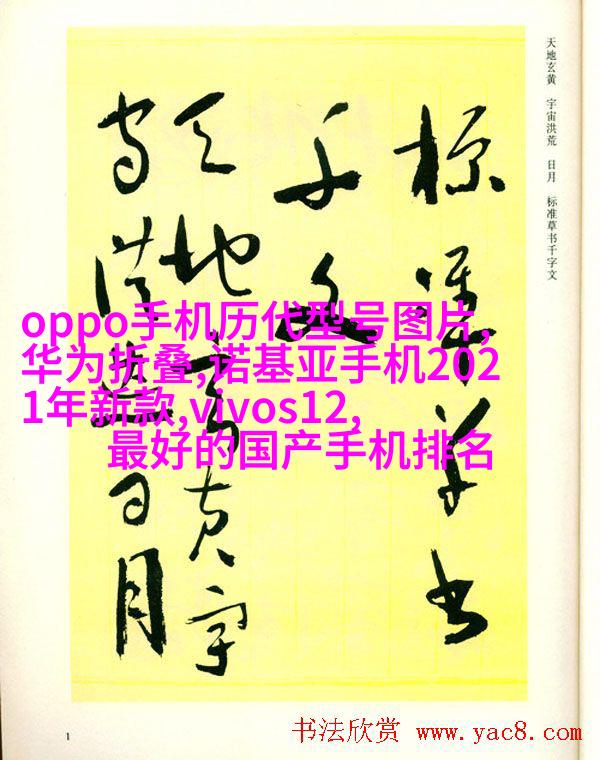 天地玄黄 宇宙洪荒 日月 标准草书千字文
标准草书
千文
天地玄黄宇
宙洪荒日月
oppo手机历代型号图片,
华为折叠,诺基亚手机202
1年新款,vivos12,
最好的国产手机排名
1
书法欣赏 www.yac8.com